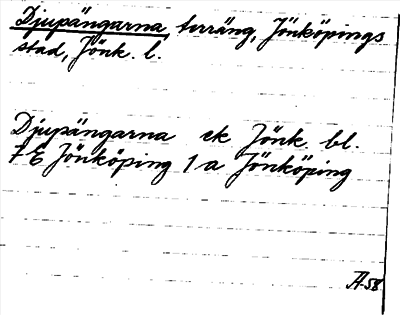 Djupängarna, terräng, Jönköpings
stad, Jönk. l.
Djupängarna ek Jönk. bl.
7 E Jönköping 1 a Jönköping
A-58